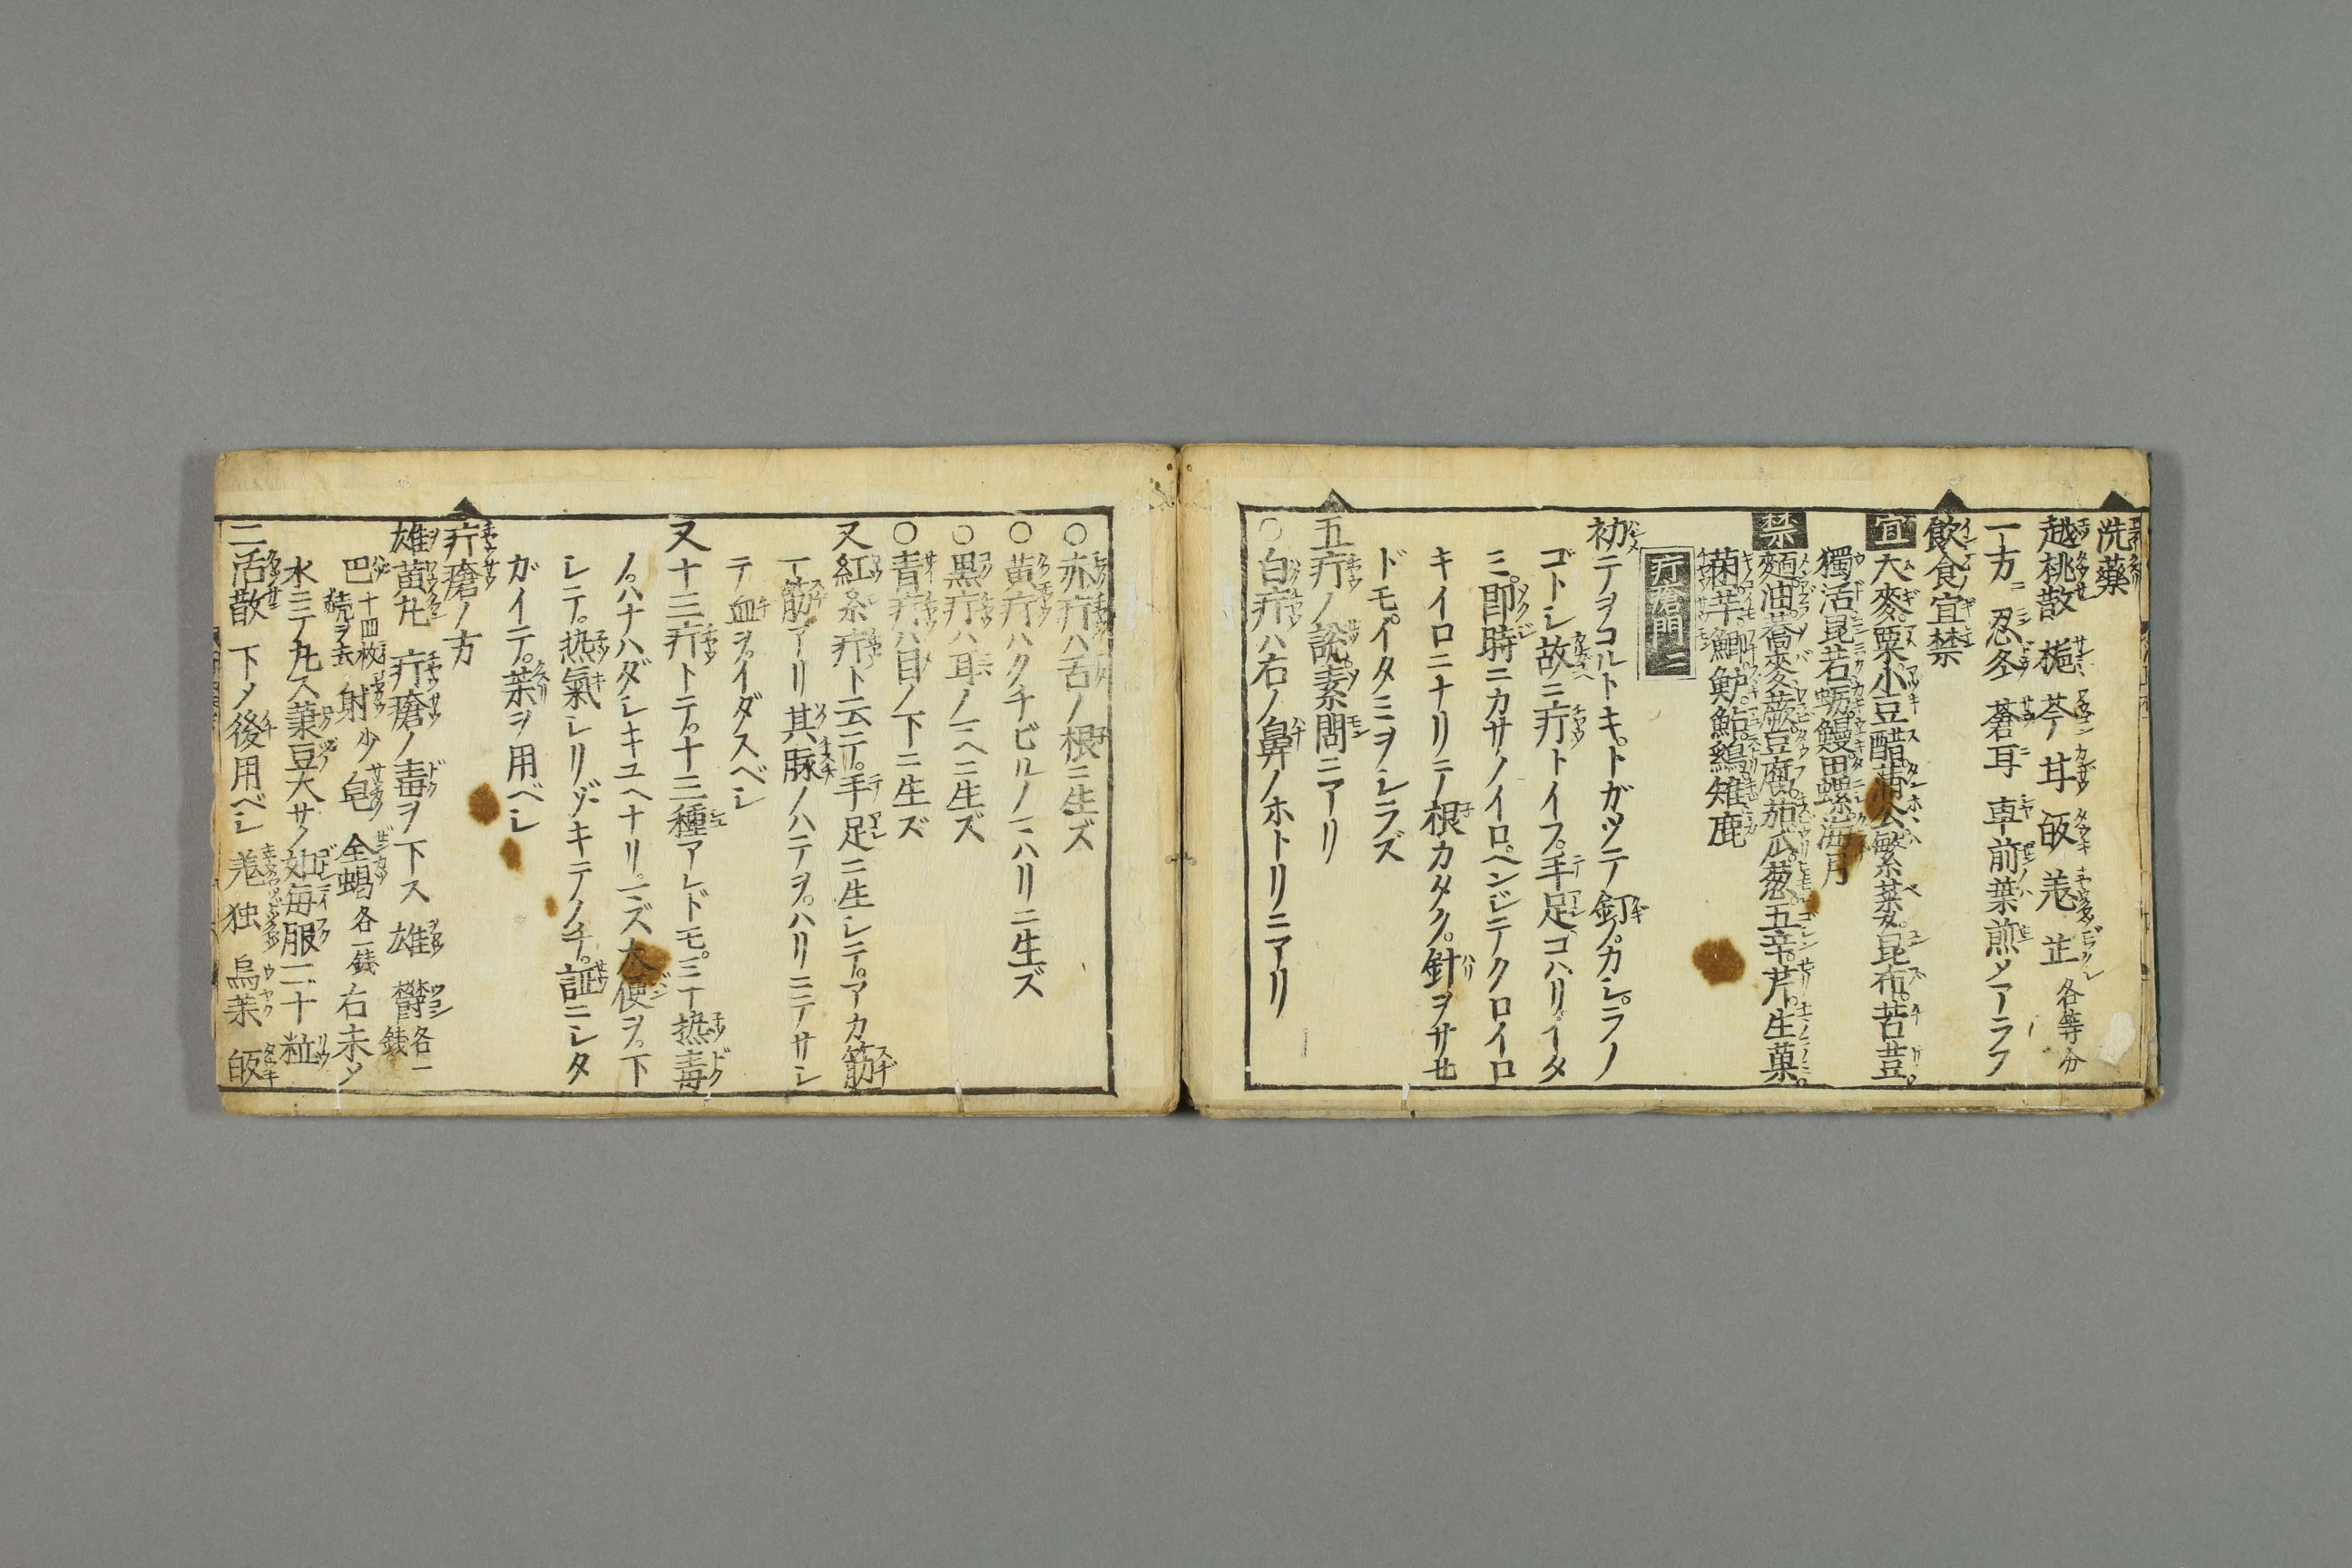 洗藥
越桃散 梔 芩 甘 皈 羗 芷 各等分
一方ニ 忍冬 蒼耳 車前葉煎メアラフ
飲食宜禁
宜 大麥。粟。小豆。醋。蒲公。繁蒌。昆布。苦荳。
獨活。昆若。蛎。鰻。田螺。海月
禁 麵。油。蕎麥。蕨。豆腐。茄。瓜。葱。五辛。芹。生菓。
菌。芋。鯽。魲。鮎。鷄。雉。鹿
疔瘡門二
初テヲコルトキ。トガツテ釘ノカシ。ラノ
ゴトシ故ニ疔トイフ。手足コハリ。イタ
ミ。即時ニカサノイロ。ヘンジテクロイロ
キイロニナリニテ根カタク。針ヲサセ
ドモ。イタミヲシラズ
五疔ノ説素問ニアリ
○白疔ハ右ノ鼻ノホトリニアリ
○赤疔ハ舌ノ根ニ生ズ
○黄疔ハクチビルノハハリニ生ズ
○黒疔ハ耳ノヘニ生ズ
○青疔ハ目ノ下ニ生ズ
又紅糸疔ト云テ。手足ニ生シテ。アカ筋
一筋アリ其脉ノハテヲ。ハリニテサシ
テ血ヲ。イダスベシ
又十三疔トテ。十三種アレドモ。ミナ热毒
ノ。ハナハダシキユヘナリ。一ズ大便ヲ。下
シテ。热氣シリゾキテノチ。証ニシタ
ガイテ。薬ヲ用ベシ
疔瘡ノ方
雄黄丸 疔瘡ノ毒ヲ下ス 雄 欝各一銭
巴十四枚売ヲ去 射少 皂 全蝎各一銭 右末メ
水ニテ丸ス菉豆大サノ如毎服二十粒
二活散 下メ後用ベシ 羗 独 烏薬 皈